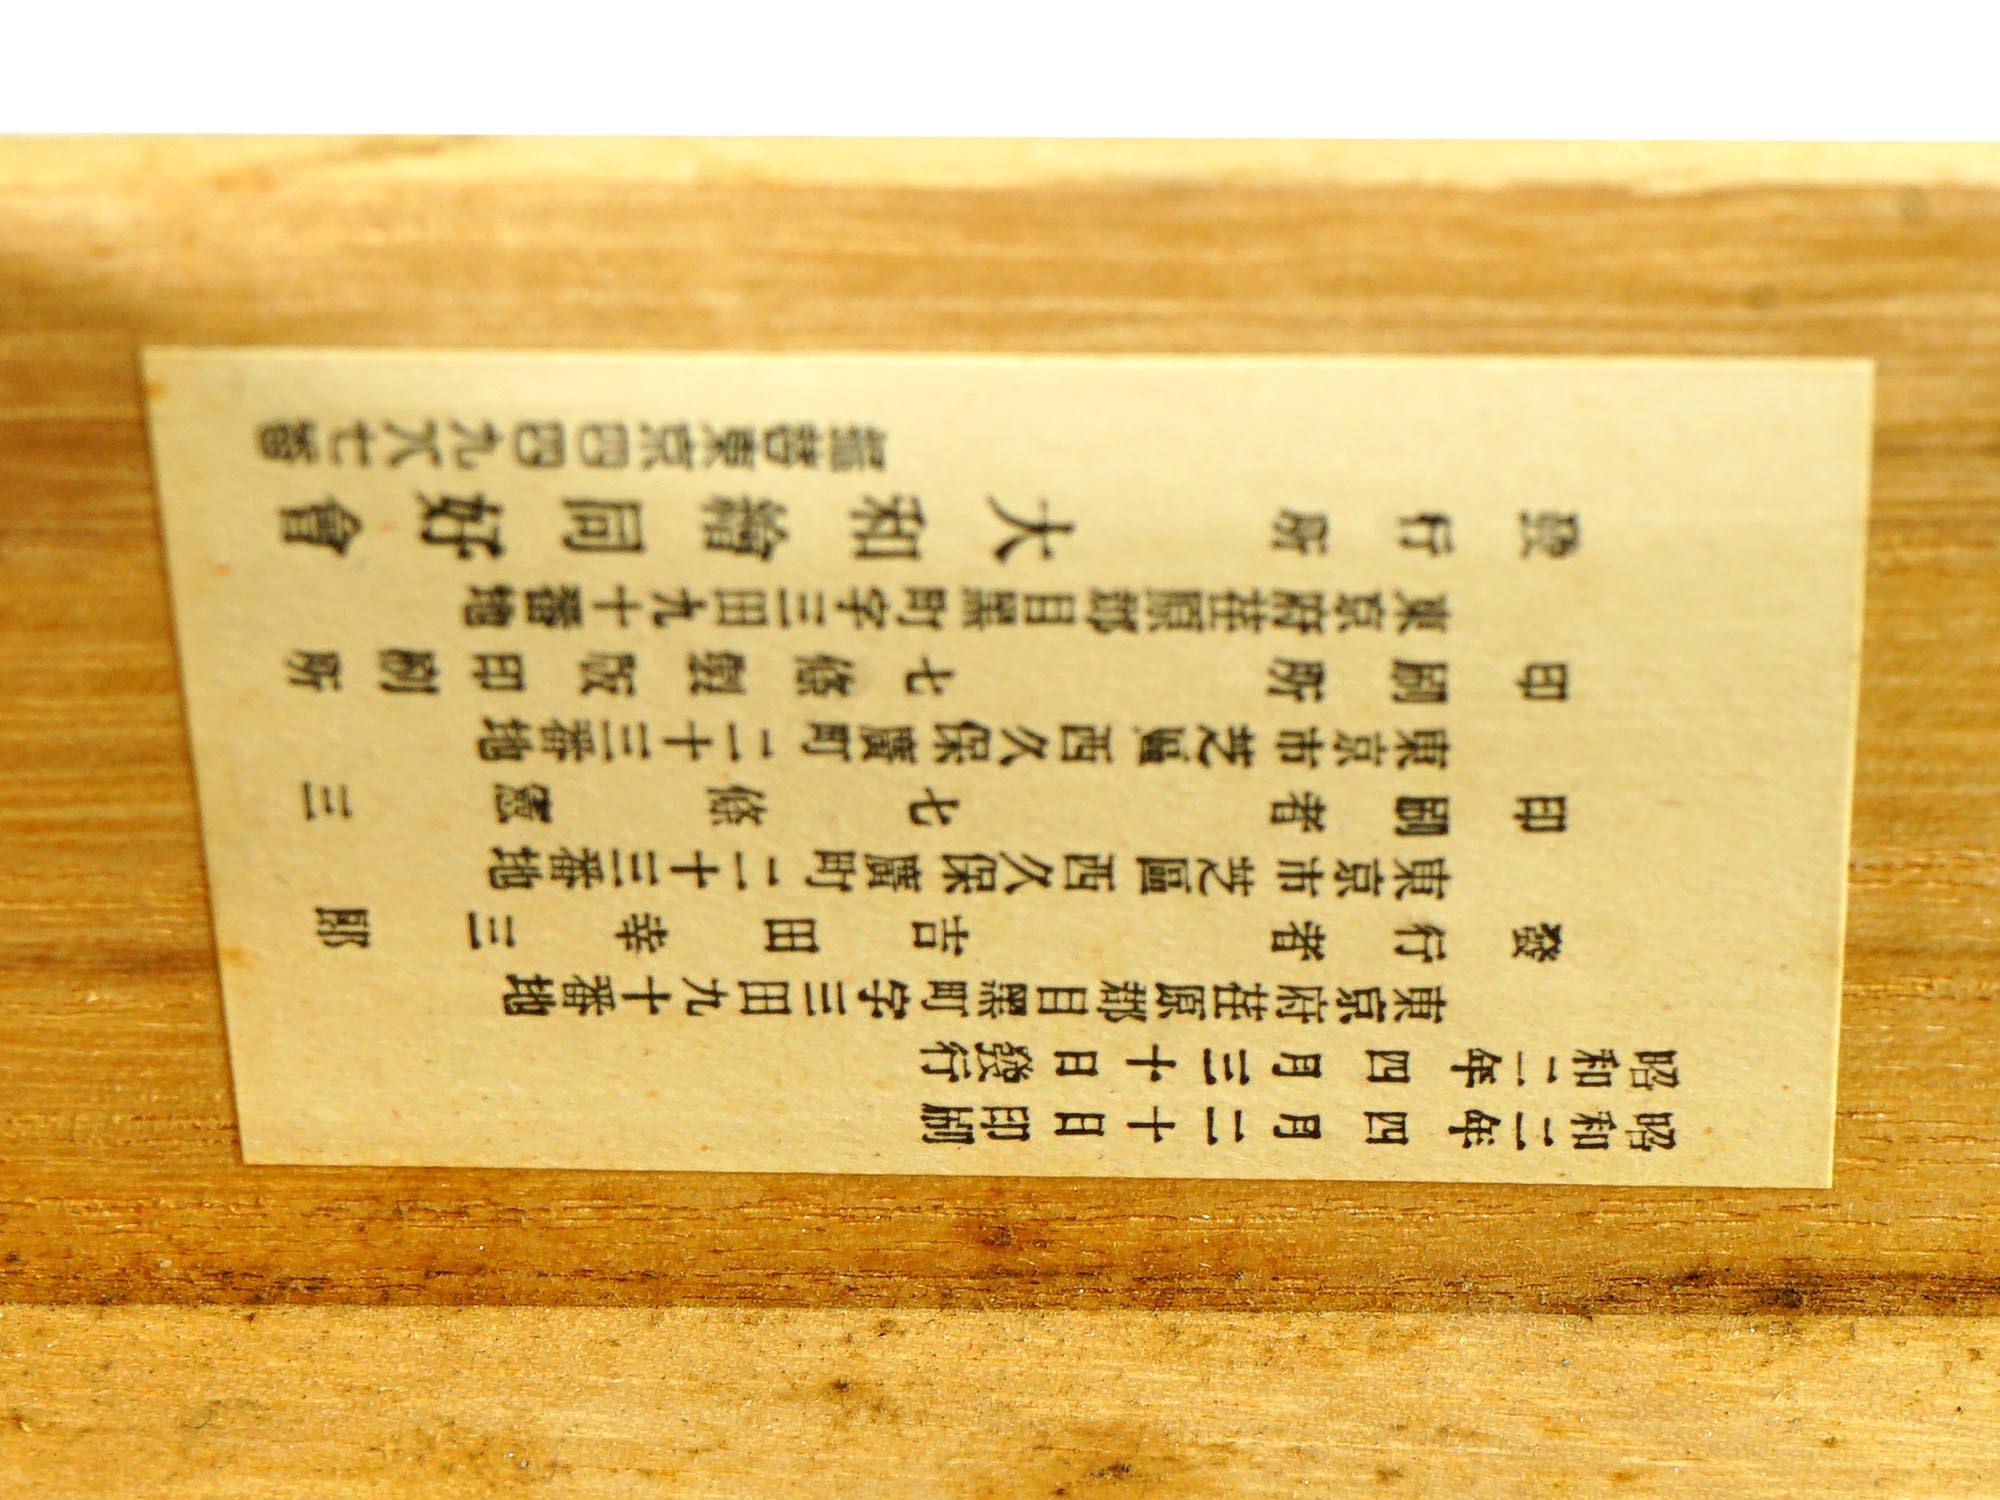 昭和二年四月二十日印刷
昭和二年四月三十日發行
東京府荏原郡目黑町字三田九十番地
發行者 吉田幸三郎
東京市芝區西久保廣町二十三番地
印刷者 七條憲三
東京市芝區西久保廣町二十三番地
印刷所 七條製版印刷所
東京府荏原郡目黑町字三田九十番地
發行所 大和繪同好會
振替東京四四九六七番